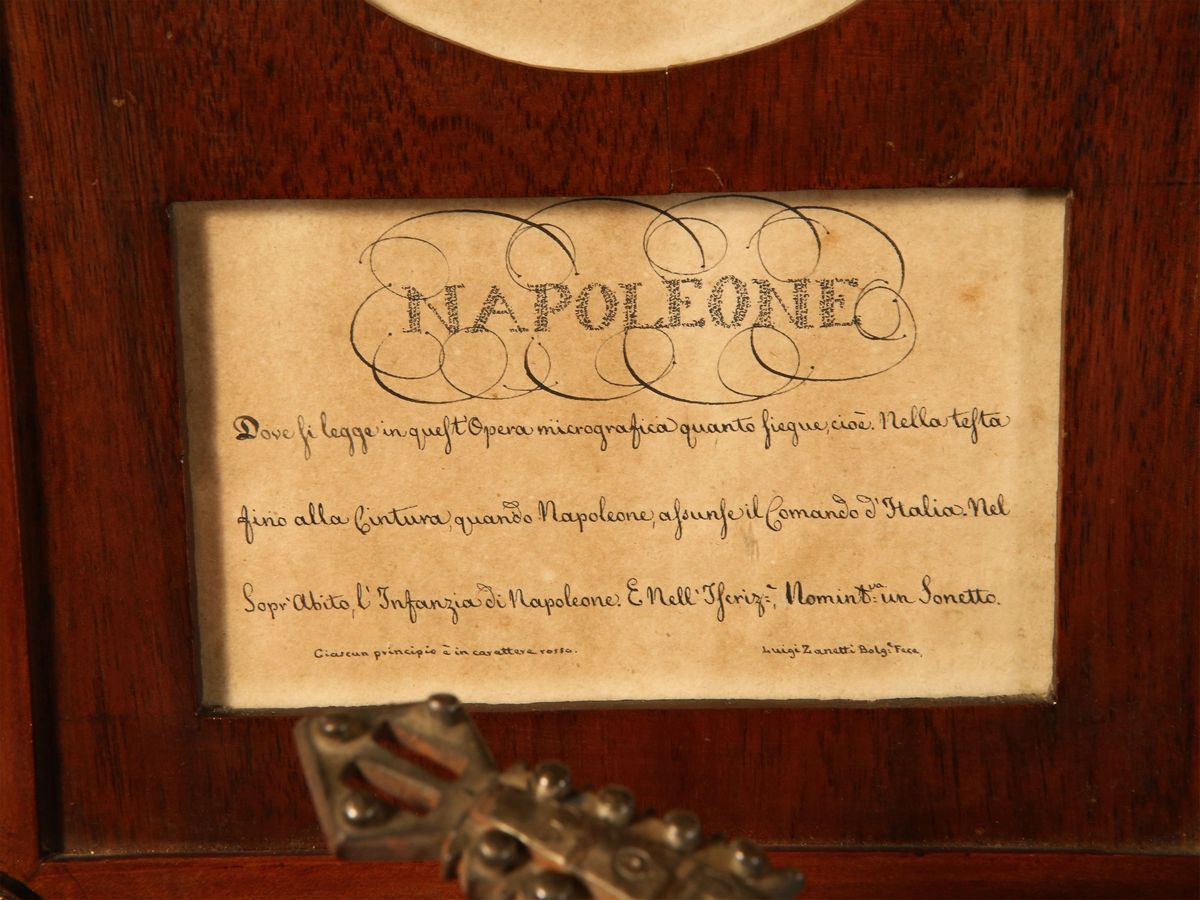 NAPOLEONE
Dove si legge in quest'Opera micrografica quanto siegue, cioè. Nella testa
fino alla Cintura, quando Napoleone, assunse il Comando d'Italia. Nel
Sopr'Abito, l'Infanzia di Napoleone. E Nell'Iscriz:e, Nomint:va un Sonetto.
Ciascun principio è in carattere rosso.
Luigi Zanetti Bolg:e Fece,